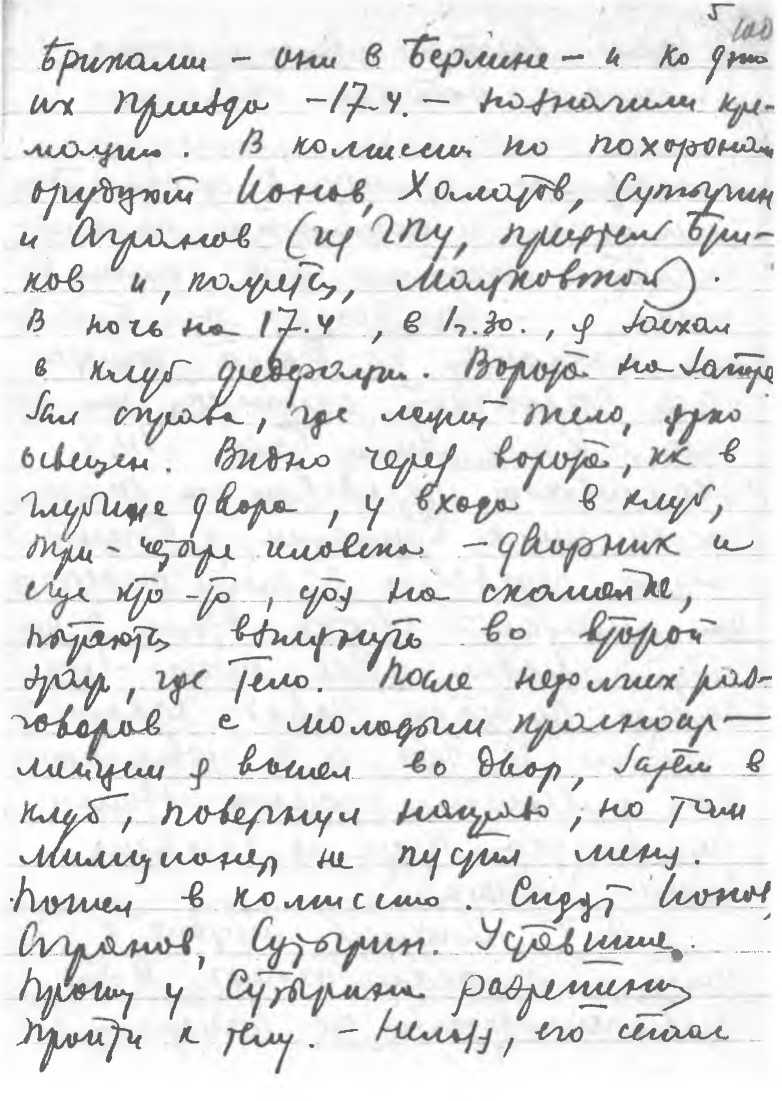 5 100
Бриками – они в Берлине – и ко дню
их приезда – 17.4. – назначили кре-
мацию. В комиссии по похоронам
орудуют Ионов, Халатов, Сутырин
и Агранов (из ГПУ, приятель Бри-
ков и, кажется, Маяковского).
В ночь на 17.4, в 1 ч. 30., я заехал
в клуб федерации. Ворота на запоре
Зал справа, где лежит тело, ярко
освещен. Видно через ворота, как в
глубине двора, у входа в клуб,
три-четыре человека – дворник и
еще кто-то, стоя на скамейке,
пытаются взглянуть во второй
этаж, где тело. После недолгих раз-
говоров с молодым красноар-
мейцем я вошел во двор, затем в
клуб, повернул направо, но там
милиционер не пустил меня.
Пошел в комиссию. Сидят Ионов,
Агранов, Сутырин. Уставшие.
Прошу у Сутырина разрешения
пройти к телу. – Нельзя, его сейчас